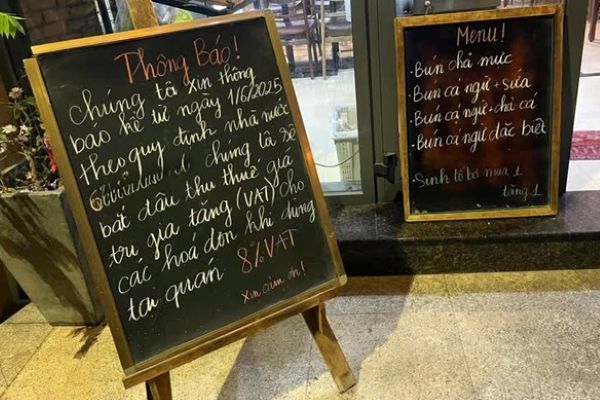 Thông Báo!
Chúng tôi xin thông
báo kể từ ngày 1/6/2025
theo quy định nhà nước
chúng tôi sẽ
bắt đầu thu thuế giá
trị gia tăng (VAT) cho
các hoá đơn khi dùng
tại quán 8% VAT
xin cảm ơn!
Menu!
• Bún chả mực
• Bún cá ngừ + sứa
• Bún cá ngừ + chả cá
• Bún cá ngừ đặc biệt
• Sinh tố bơ mua 1
tặng 1